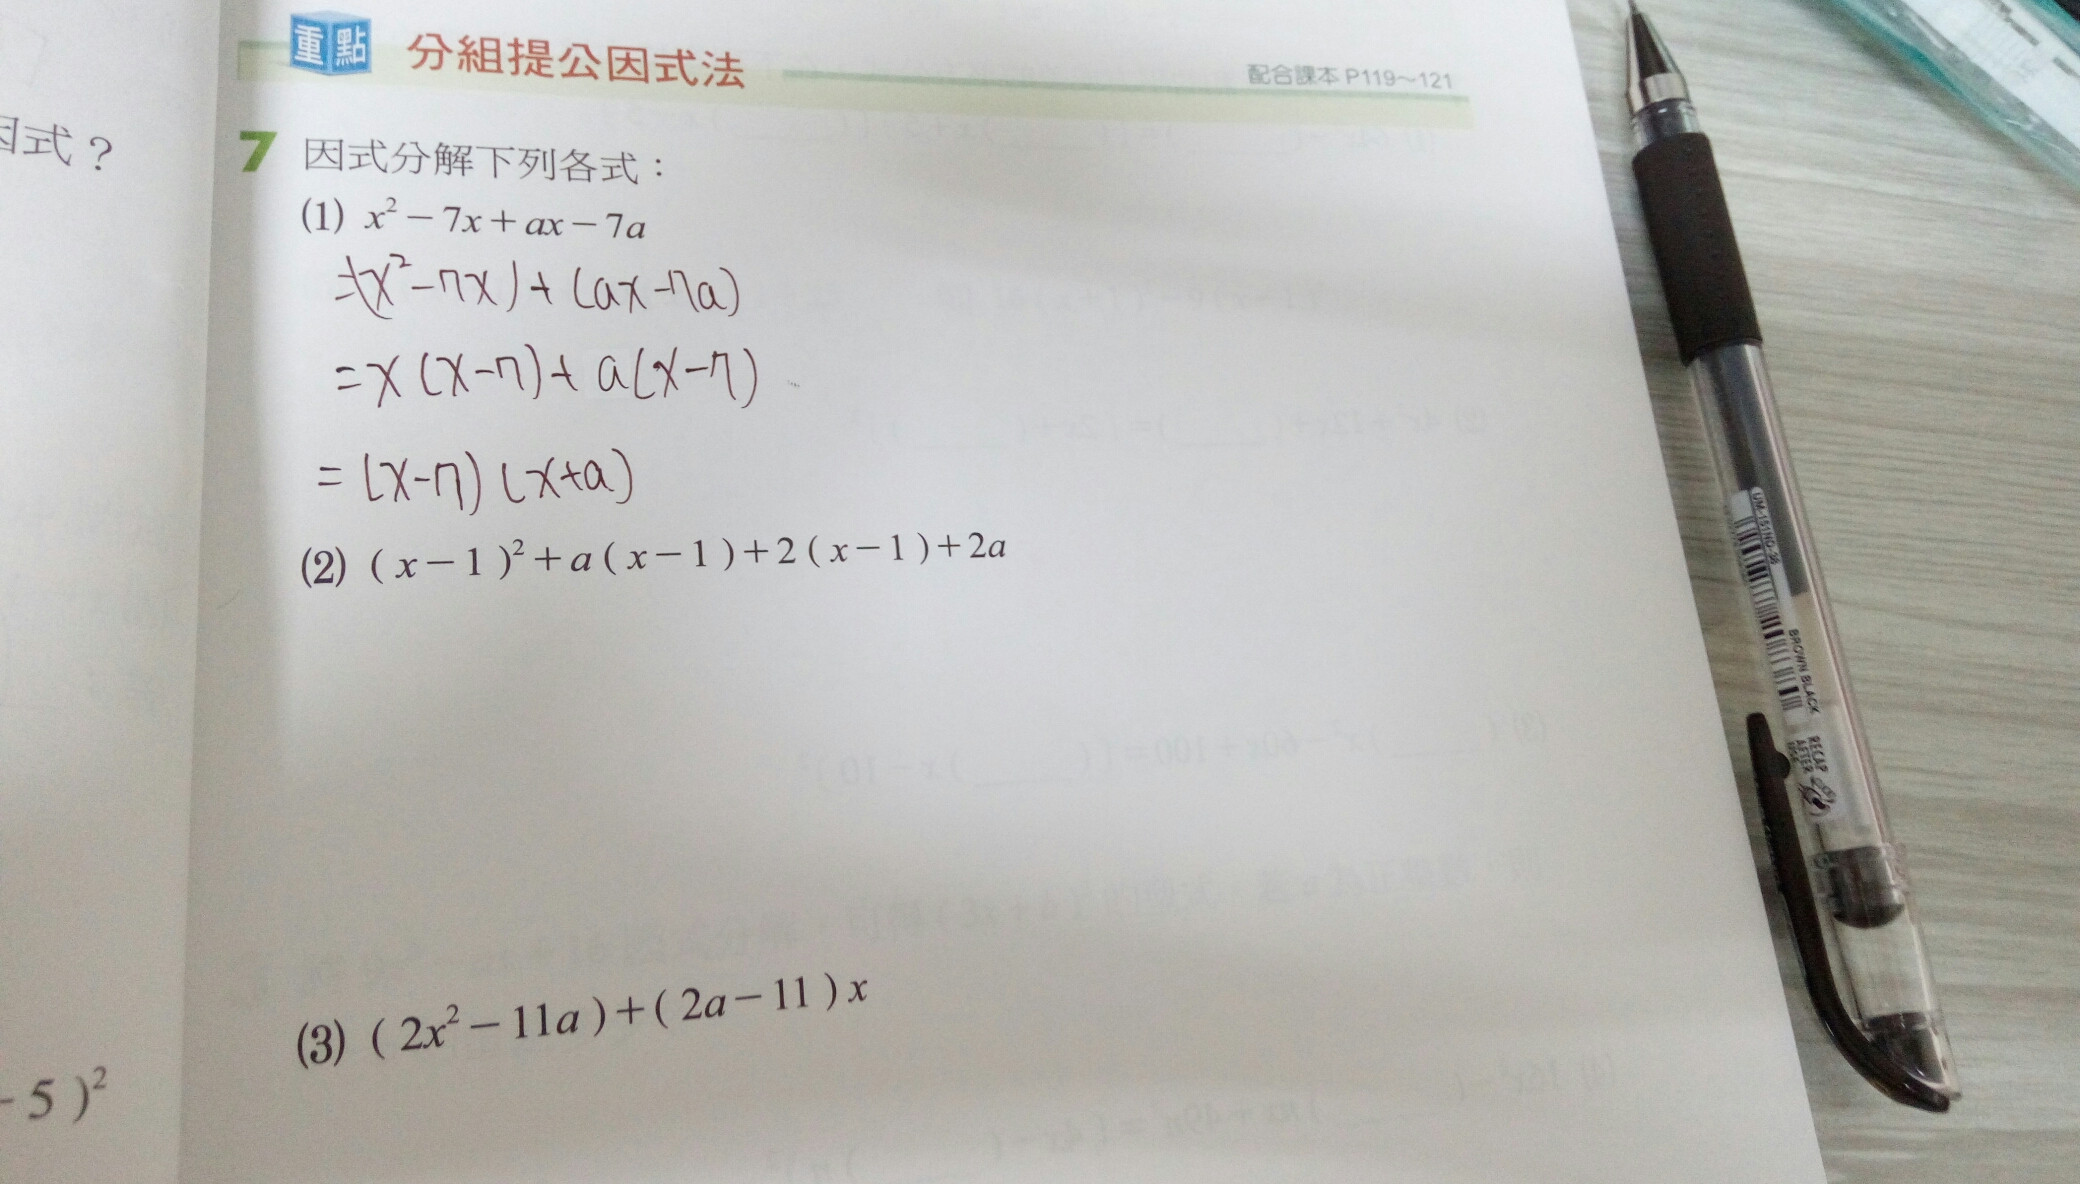 因式？
-5)²
重點 分組提公因式法 配合課本P119～121
7 因式分解下列各式：
(1) x²－7x＋ax－7a
=(x²-7x)+(ax-7a)
=x(x-7)+a(x-7)
=(x-7)(x+a)
(2) (x－1)²＋a(x－1)＋2(x－1)＋2a
(3) (2x²－11a)＋(2a－11)x
UM-151ND-38
BROWN BLACK
RECAP
AFTER
USE